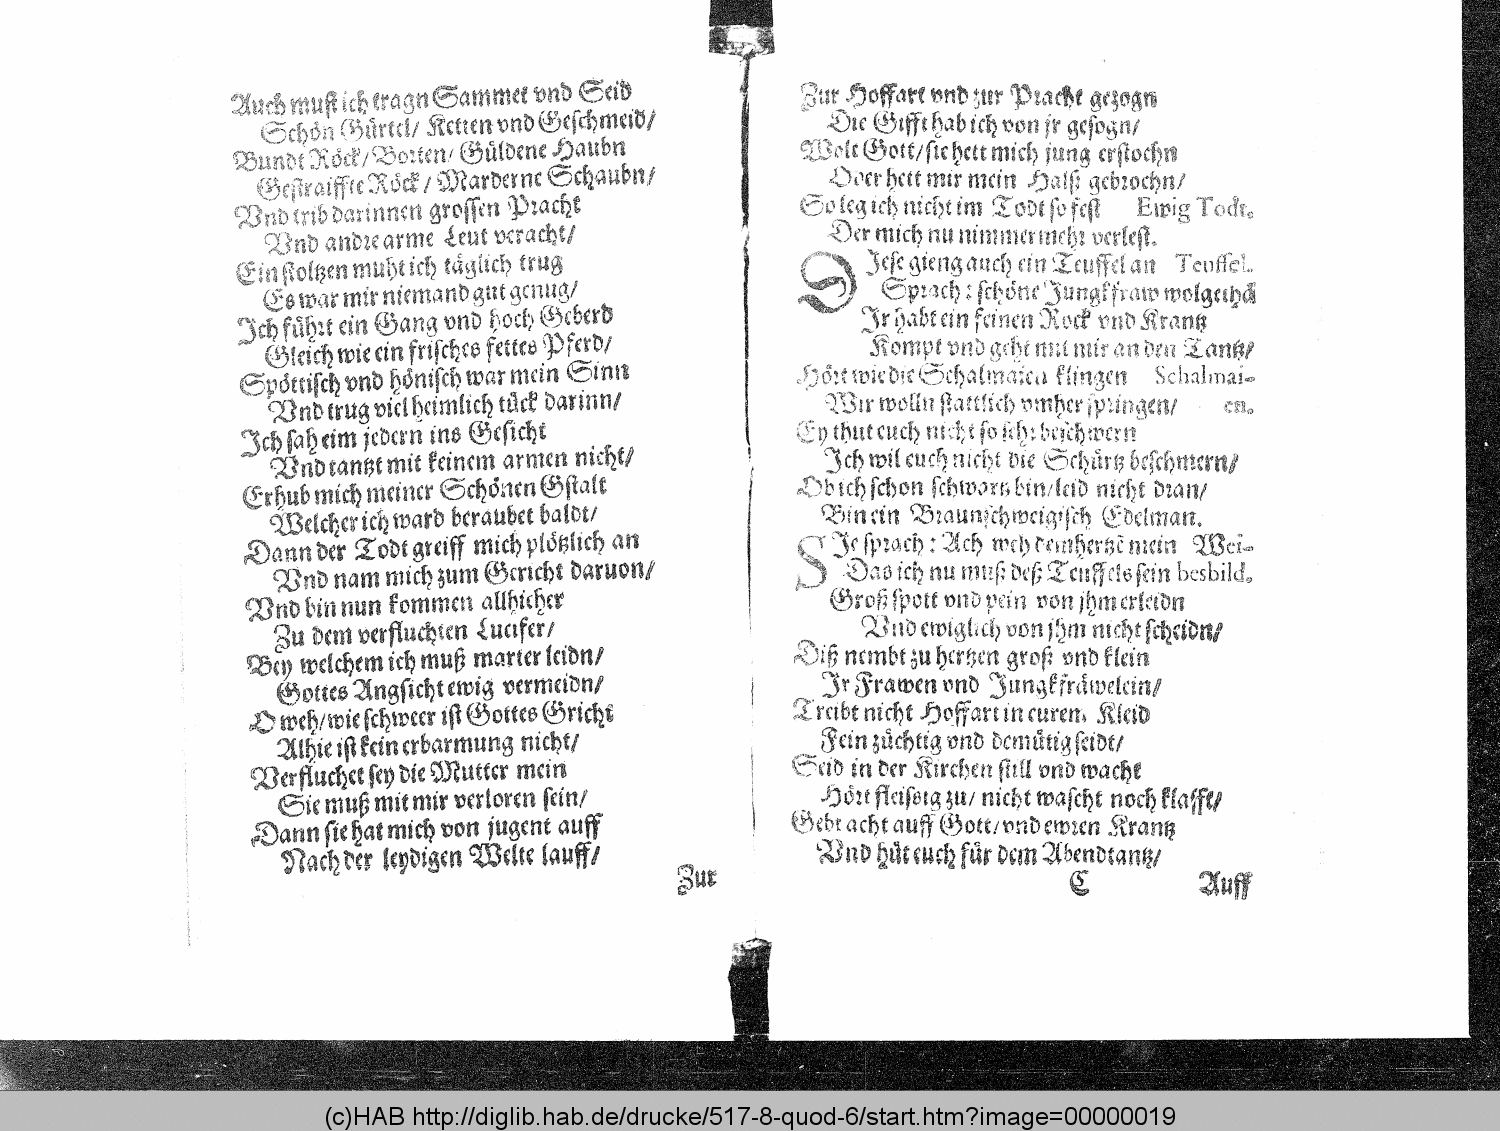 Auch must ich tragn Sammet vnd Seid
Schön Gürtel/ Ketten vnd Geschmeid/
Bundt Röck/ Borten/ Güldene Haubn
Gestraiffte Röck/ Marderne Schaubn/
Vnd trib darinnen grossen Pracht
Vnd andre arme Leut veracht/
Ein stoltzen muht ich täglich trug
Es war mir niemand gut genug/
Ich führt ein Gang vnd hoch Geberd
Gleich wie ein frisches fettes Pferd/
Spöttisch vnd hönisch war mein Sinn
Vnd trug viel heimlich tück darinn/
Ich sah eim jedern ins Gesicht
Vnd tantzt mit keinem armen nicht/
Erhub mich meiner Schönen Gstalt
Welcher ich ward beraubet baldt/
Dann der Todt greiff mich plötzlich an
Vnd nam mich zum Gericht daruon/
Vnd bin nun kommen allhieher
Zu dem verfluchten Lucifer/
Bey welchem ich muß marter leidn/
Gottes Angsicht ewig vermeidn/
O weh/ wie schweer ist Gottes Gricht
Alhie ist kein erbarmung nicht/
Verfluchet sey die Mutter mein
Sie muß mit mir verloren sein/
Dann sie hat mich von jugent auff
Nach der leydigen Welte lauff/
Zur
Zur Hoffart vnd zur Pracht gezogn
Die Gifft hab ich von jr gesogn/
Wolt Gott/ sie hett mich jung erstochn
Oder hett mir mein Halß gebrochn/
So leg ich nicht im Todt so fest Ewig Todt.
Der mich nu nimmermehr verlest.
DIese gieng auch ein Teuffel an Teuffel.
Sprach: schöne Jungkfraw wolgethã
Ir habt ein feinen Rock vnd Krantz
Kompt vnd geht mit mir an den Tantz/
Hört wie die Schalmaien klingen Schalmai-
Wir wolln stattlich vmher springen/ en.
Ey thut euch nicht so sehr beschwern
Ich wil euch nicht die Schürtz beschmern/
Ob ich schon schwartz bin/ leid nicht dran/
Bin ein Braunschweigisch Edelman.
SIe sprach: Ach weh dem hertzẽ mein Wei-
Das ich nu muß deß Teuffels sein besbild.
Groß spott vnd pein von jhm erleidn
Vnd ewiglich von jhm nicht scheidn/
Diß nembt zu hertzen groß vnd klein
Ir Frawen vnd Jungkfräwelein/
Treibt nicht Hoffart in eurem Kleid
Fein züchtig vnd demütig seidt/
Seid in der Kirchen still vnd wacht
Hört fleissig zu/ nicht wascht noch klafft/
Gebt acht auff Gott/ vnd ewren Krantz
Vnd hüt euch für dem Abendtantz/
C Auff
(c)HAB http://diglib.hab.de/drucke/517-8-quod-6/start.htm?image=00000019